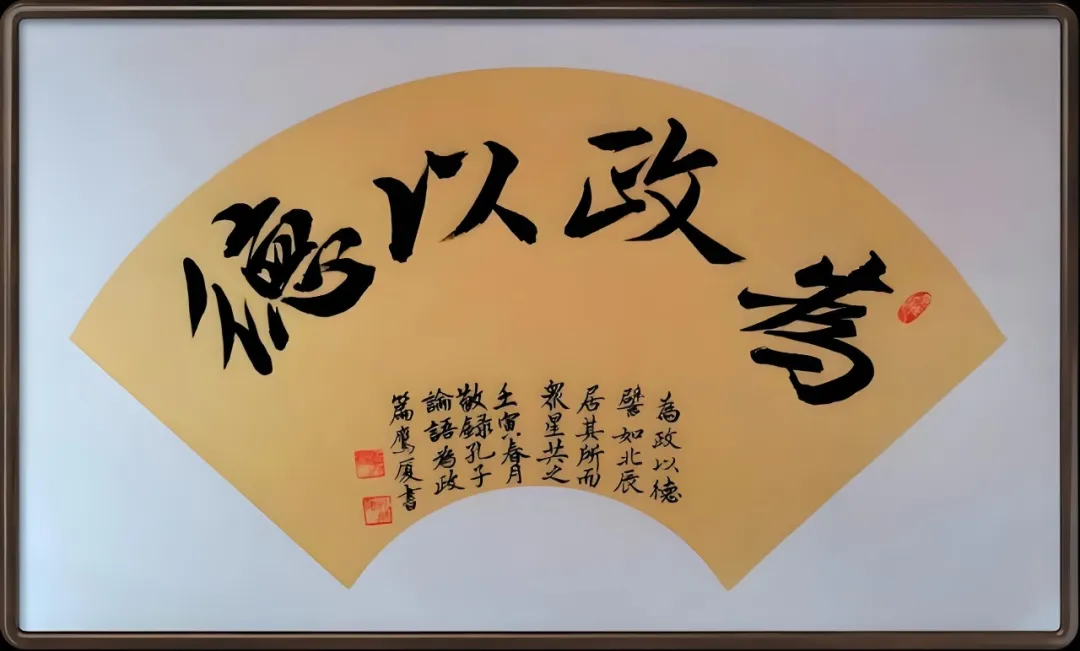 為政以德
為政以德
譬如北辰
居其所而
眾星共之
壬寅春月
敬録孔子
論語為政
篇鷹厦書